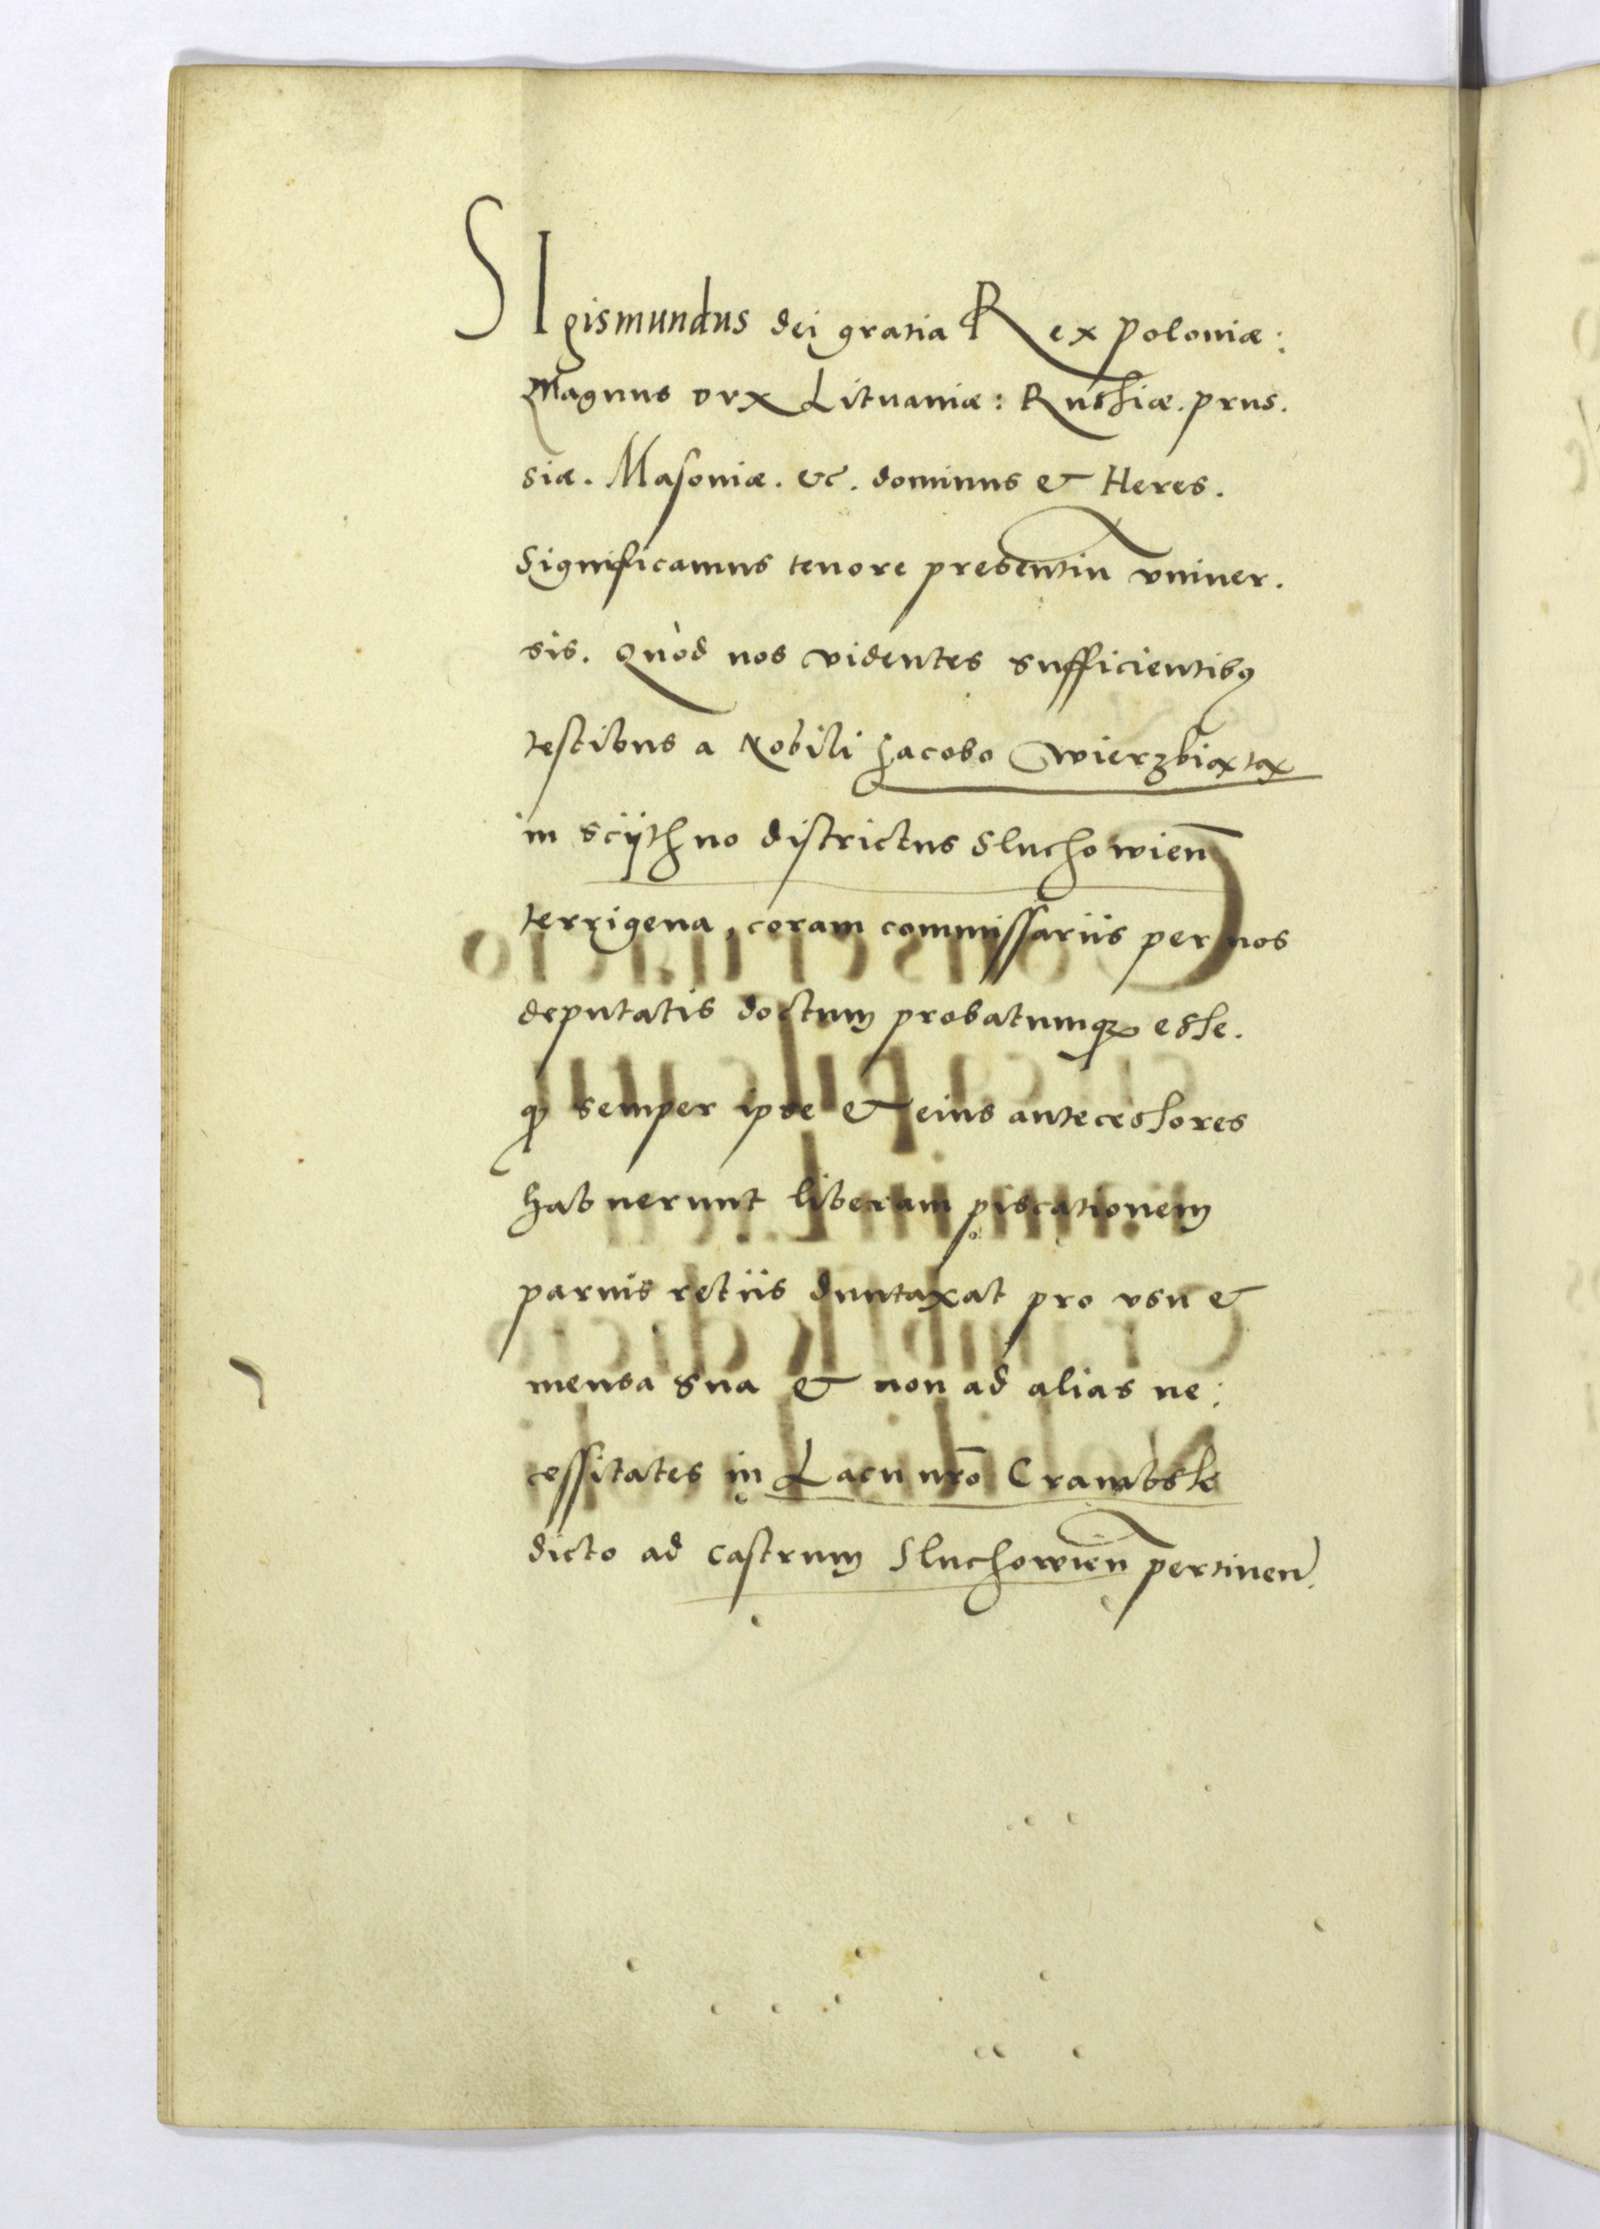 SIgismundus dei gratia Rex Poloniæ:
Magnus Dux Lituaniæ: Russiæ. prus.
siæ. Masoniæ. &c. dominus & Heres.
Significamus tenore presentiū vniuer.
sis. Quòd nos videntes sufficientibꝰ
testibus a Nobili Jacobo Wierzbiaxtax
in sciÿthno districtus Sluchowien̄
terrigena, coram commissariis per nos
deputatis doctum probatumqꝫ esse.
ꝙ semper ipse & eius antecessores
habuerunt liberam piscationem
paruis retiis duntaxat pro vsu &
mensa sua & non ad alias ne:
cessitates in Lacu nr̄o Crambsk
dicto ad castrum Sluchowien̄ pertinen̄.